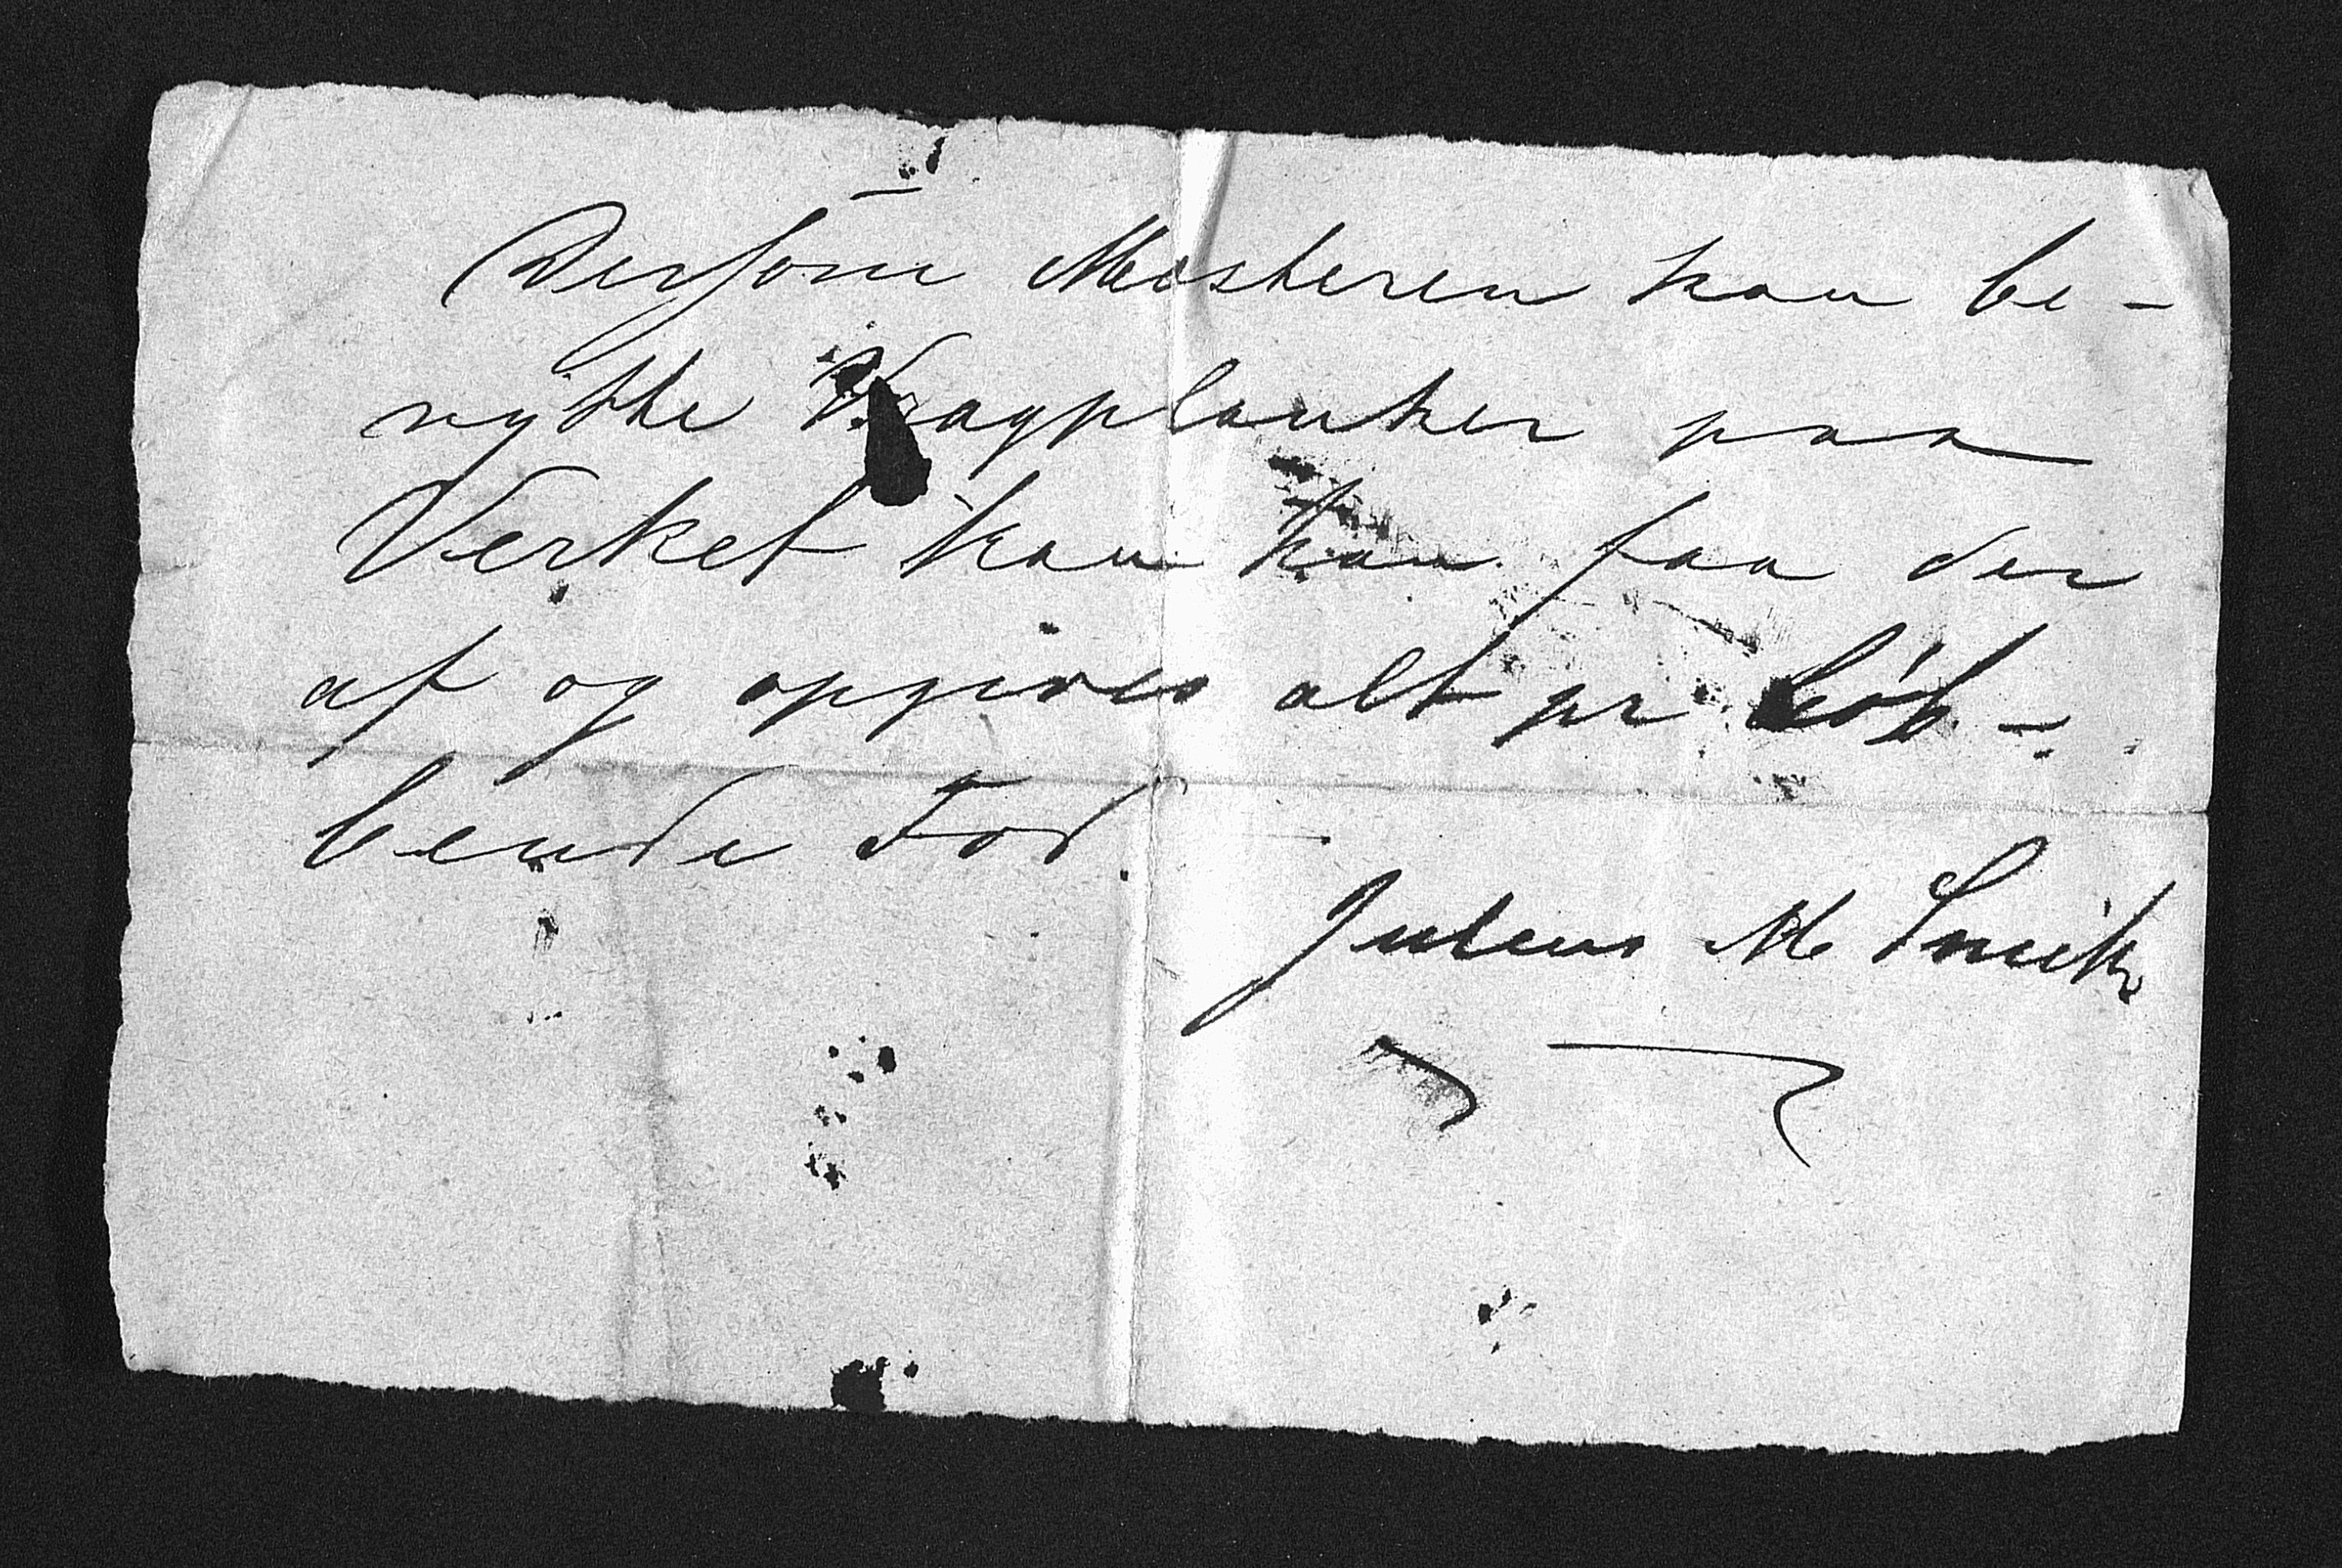 Dersom Mesteren kan be-
nytte Vragplanker paa
Verket kan han faa der
af og opgives alt pr løb-
bende Fod.
Julius M Smith